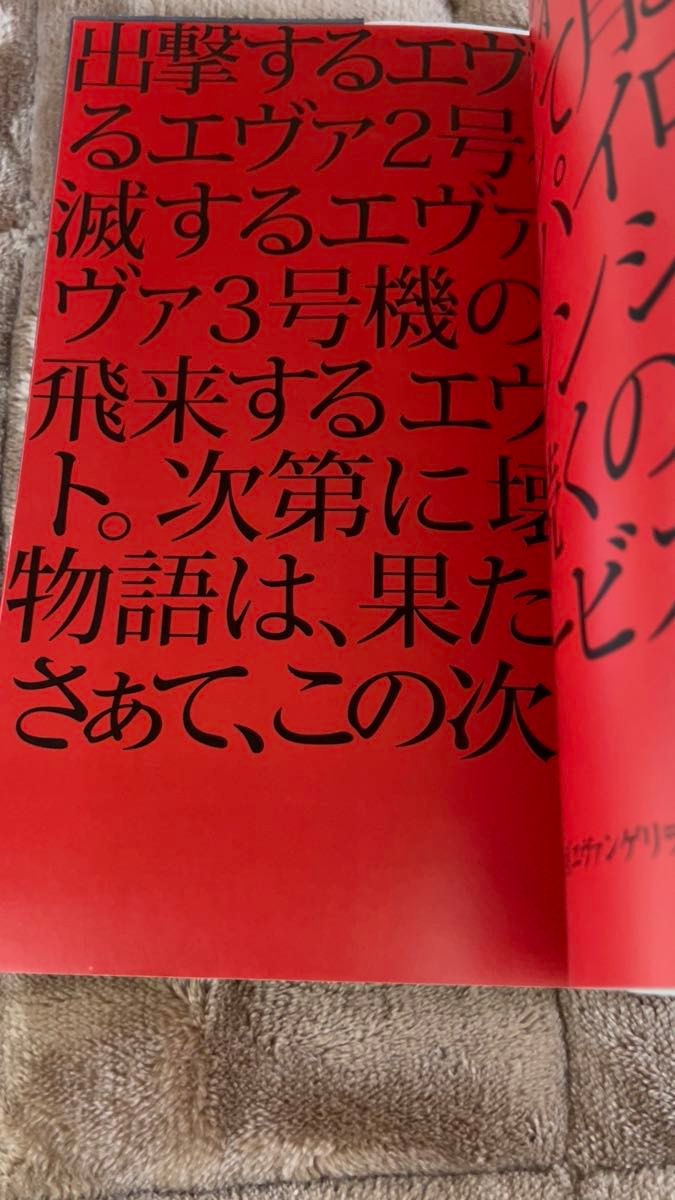 出撃するエヴ
るエヴァ2号
滅するエヴァ
ヴァ3号機の
飛来するエヴ
ト。次第に壊
物語は、果た
さぁて、この次
イロ
シ
の
エヴァンゲリ